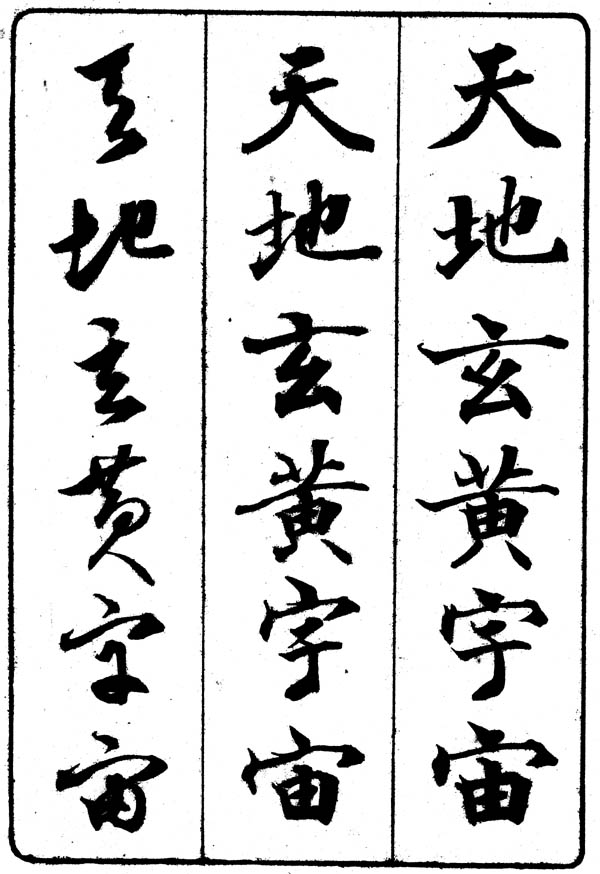 天地玄黄宇宙
天地玄黄宇宙
天地玄黄宇宙